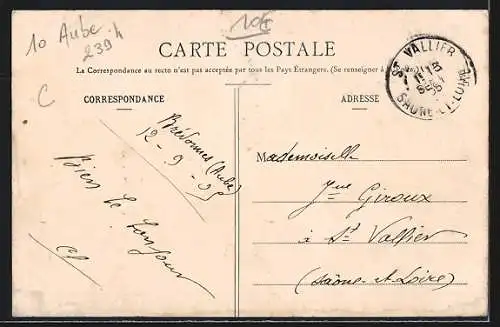 10 Aube
239 h
10€
C
CARTE POSTALE
La Correspondance au recto n'est pas acceptée par tous les Pays Étrangers. (Se renseigner à
CORRESPONDANCE
ADRESSE
ST VALLIER
SAONE-ET-LOIRE
Brévonnes (Aube)
12-9-05
Bien le bonjour
Mademoiselle
Giroux
à St Vallier
(Saône-et-Loire)